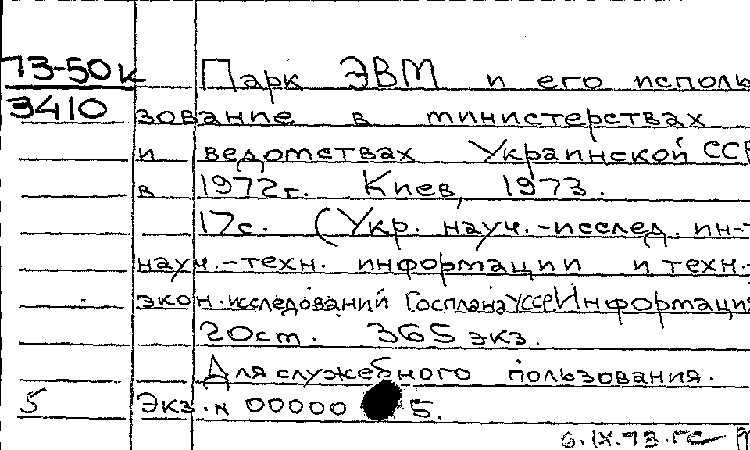 73-50к Парк ЭВМ и его исполь
3410 зование в министерствах
и ведомствах Украинской ССР
в 1972г. Киев, 1973.
17с. (Укр. науч.-исслед. ин-т
науч.-техн. информации и техн.-
экон. исследований Госплана УССР Информация
20 ст. 365 экз.
Для служебного пользования.
5 Экз. N 00000 5.
6.IX.73.